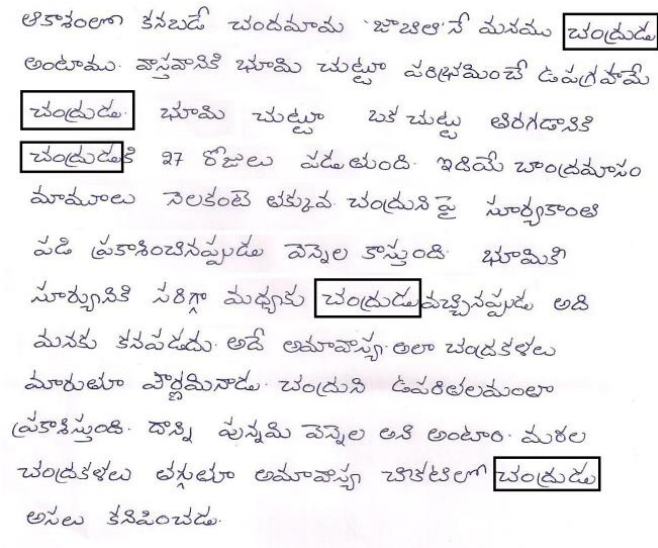 ఆకాశంలో కనబడే చందమామ 'జాబిలి'నే మనము చంద్రుడు
అంటాము. వాస్తవానికి భూమి చుట్టూ పరిభ్రమించే ఉపగ్రహమే
చంద్రుడు. భూమి చుట్టూ ఒక చుట్టు తిరగడానికి
చంద్రుడుకి 27 రోజులు పడుతుంది. ఇదియే చాంద్రమాసం
మామూలు నెలకంటె తక్కువ. చంద్రుని పై సూర్యకాంతి
పడి ప్రకాశించినప్పుడు వెన్నెల కాస్తుంది. భూమికి
సూర్యునికి సరిగ్గా మధ్యకు చంద్రుడు వచ్చినప్పుడు అది
మనకు కనపడదు. అదే అమావాస్య. అలా చంద్రకళలు
మారుతూ పౌర్ణమినాడు. చంద్రుని ఉపరితలమంతా
ప్రకాశిస్తుంది. దాన్ని పున్నమి వెన్నెల అని అంటారు. మరల
చంద్రకళలు తగ్గుతూ అమావాస్య చీకటిలో చంద్రుడు
అసలు కనిపించడు.